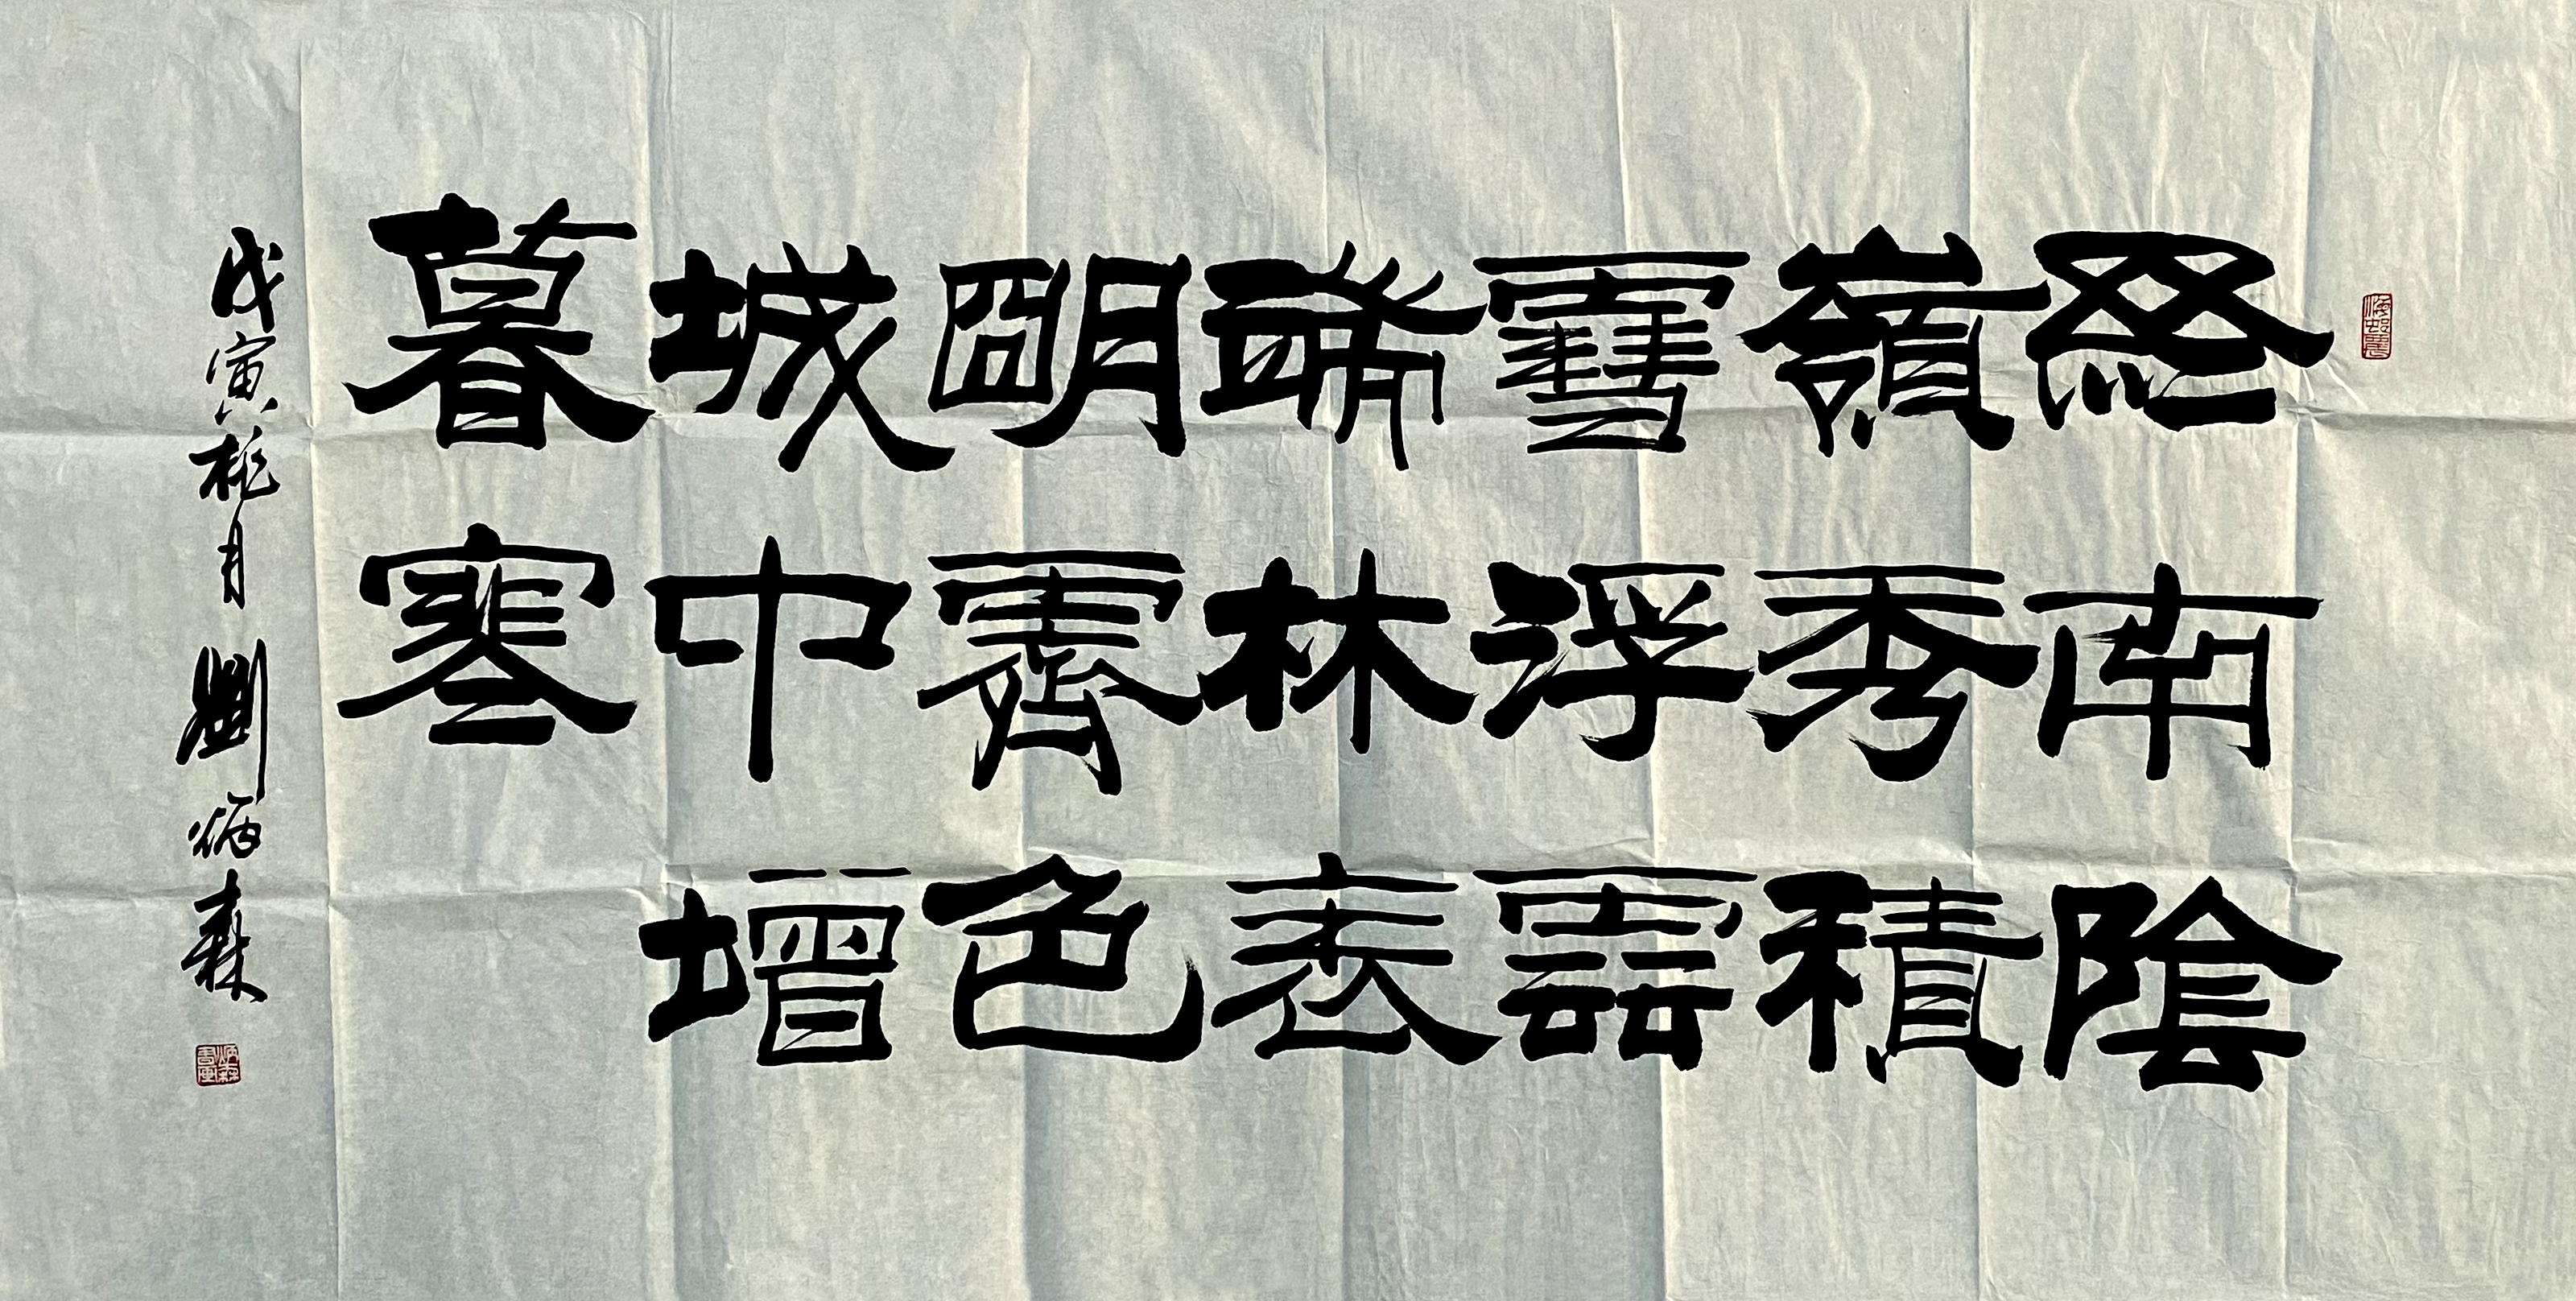 終南陰
嶺秀積
雪浮雲
端林表
明霽色
城中增
暮寒
戊寅桃月 劉炳森
炳森書画